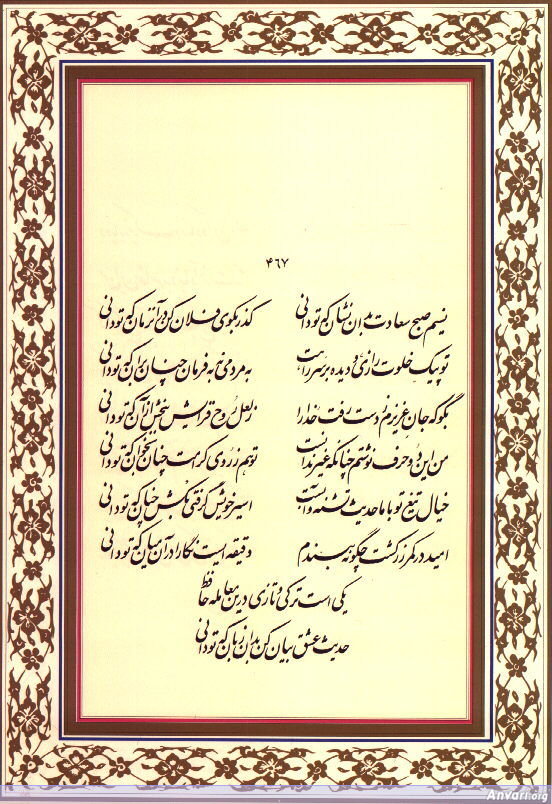 ۴۶۷
نسیم صبح سعادت بدان نشان که تو دانی گذر بکوی فلان کن در آن زمان که تو دانی
تو پیک خلوت رازی و دیده بر سر راهت به مردمی نه به فرمان چنان بران که تو دانی
بگو که جان عزیزم ز دست رفت خدا را ز لعل روح فزایش ببخش از آن که تو دانی
من این دو حرف نوشتم چنانکه غیر ندانست تو هم ز روی کرامت چنان بخوان که تو دانی
خیال تیغ تو با ما حدیث تشنه و آبست اسیر خویش گرفتی بکش چنان که تو دانی
امید در کمر زرکشت چگونه ببندم دقیقه ایست نگارا در آن میان که تو دانی
یکی است ترکی و تازی درین معامله حافظ
حدیث عشق بیان کن بدان زبان که تو دانی
Anvari.org